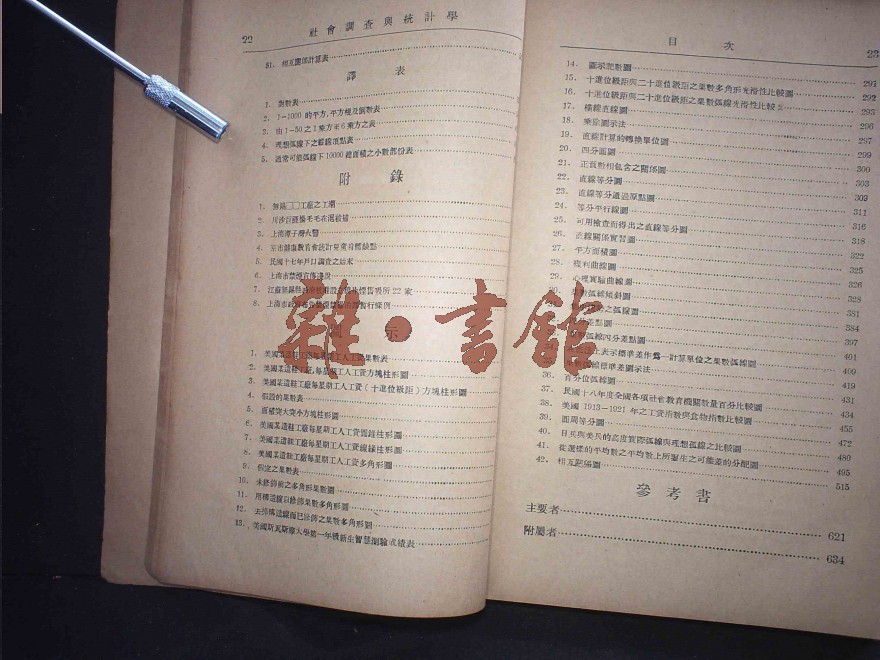 22 社會調查與統計學
51. 相互關係計算表
譯 表
1. 對數表
2. 1—1000 的平方,平方根及倒數表
3. 由 1—50 之 1 乘方至 6 乘方之表
4. 理想弧線下之縱線項點表
5. 通常可能弧線下 10000 總面積之小數部份表
附 錄
1. 無錫□□工廠之工潮
2.
3. 上南潭子灣火警
4.
5. 民國十七年戶口調查之始末
6. 上海市禁煙宣傳進況
7. 22 家
8. 上海市政府 暫行條例
圖 示
1. 美國某造鞋工廠每星期工人工資集數表
2. 美國某造鞋工廠每星期工人工資方塊柱形圖
3. 美國某造鞋工廠每星期工人工資(十進位級距)方塊柱形圖
4. 假設的集數表
5. 面積突大突小方塊柱形圖
6. 美國某造鞋工廠每星期工人工資間錯柱形圖
7. 美國某造鞋工廠每星期工人工資線緣柱形圖
8. 美國某造鞋工廠每星期工人工資多角形圖
9. 假定之集數表
10. 未修飾前之多角形集數圖
11. 用構造線以修飾集數多角形圖
12. 去掉構造線而已修飾之集數多角形圖
13. 美國斯瓦斯摩大學第一年級新生智慧測驗成績表
目 次 23
14. 圖示距數圖 291
15. 十進位級距與二十進位級距之集數多角形光滑性比較圖 292
16. 十進位級距與二十進位級距之集數弧線光滑性比較 295
17. 橫線直線圖 296
18. 乘除圖示法 297
19. 直線計算的轉換單位圖 299
20. 四分面圖 300
21. 正負數相包含之關係圖 303
22. 直線等分圖 309
23. 直線等分通過原點圖 311
24. 等分平行線圖 316
25. 可用檢查而得出之直線等分圖 318
26. 直線關係實習圖 322
27. 平方面積圖 325
28. 複利曲線圖 326
29. 心理實驗曲線圖 328
30. 弧線傾斜圖 381
之弧線圖 384
差點圖 397
弧線四分差點圖 401
上表示標準差作為一計算單位之集數弧線圖 409
弧線標準差圖示法 419
36. 百分位弧線圖 431
37. 民國十八年度全國各項社會教育機關數量百分比較圖 434
38. 美國 1913—1921 年之工資指數與食物指數比較圖 455
39. 面周等分圖 472
40. 日兵與美兵的高度實際弧線與理想弧線之比較圖 480
41. 從選樣的平均數之平均數上所產生之可能差的分配圖 495
42. 相互關係圖 515
參考書
主要者 621
附屬者 634
雜·書館